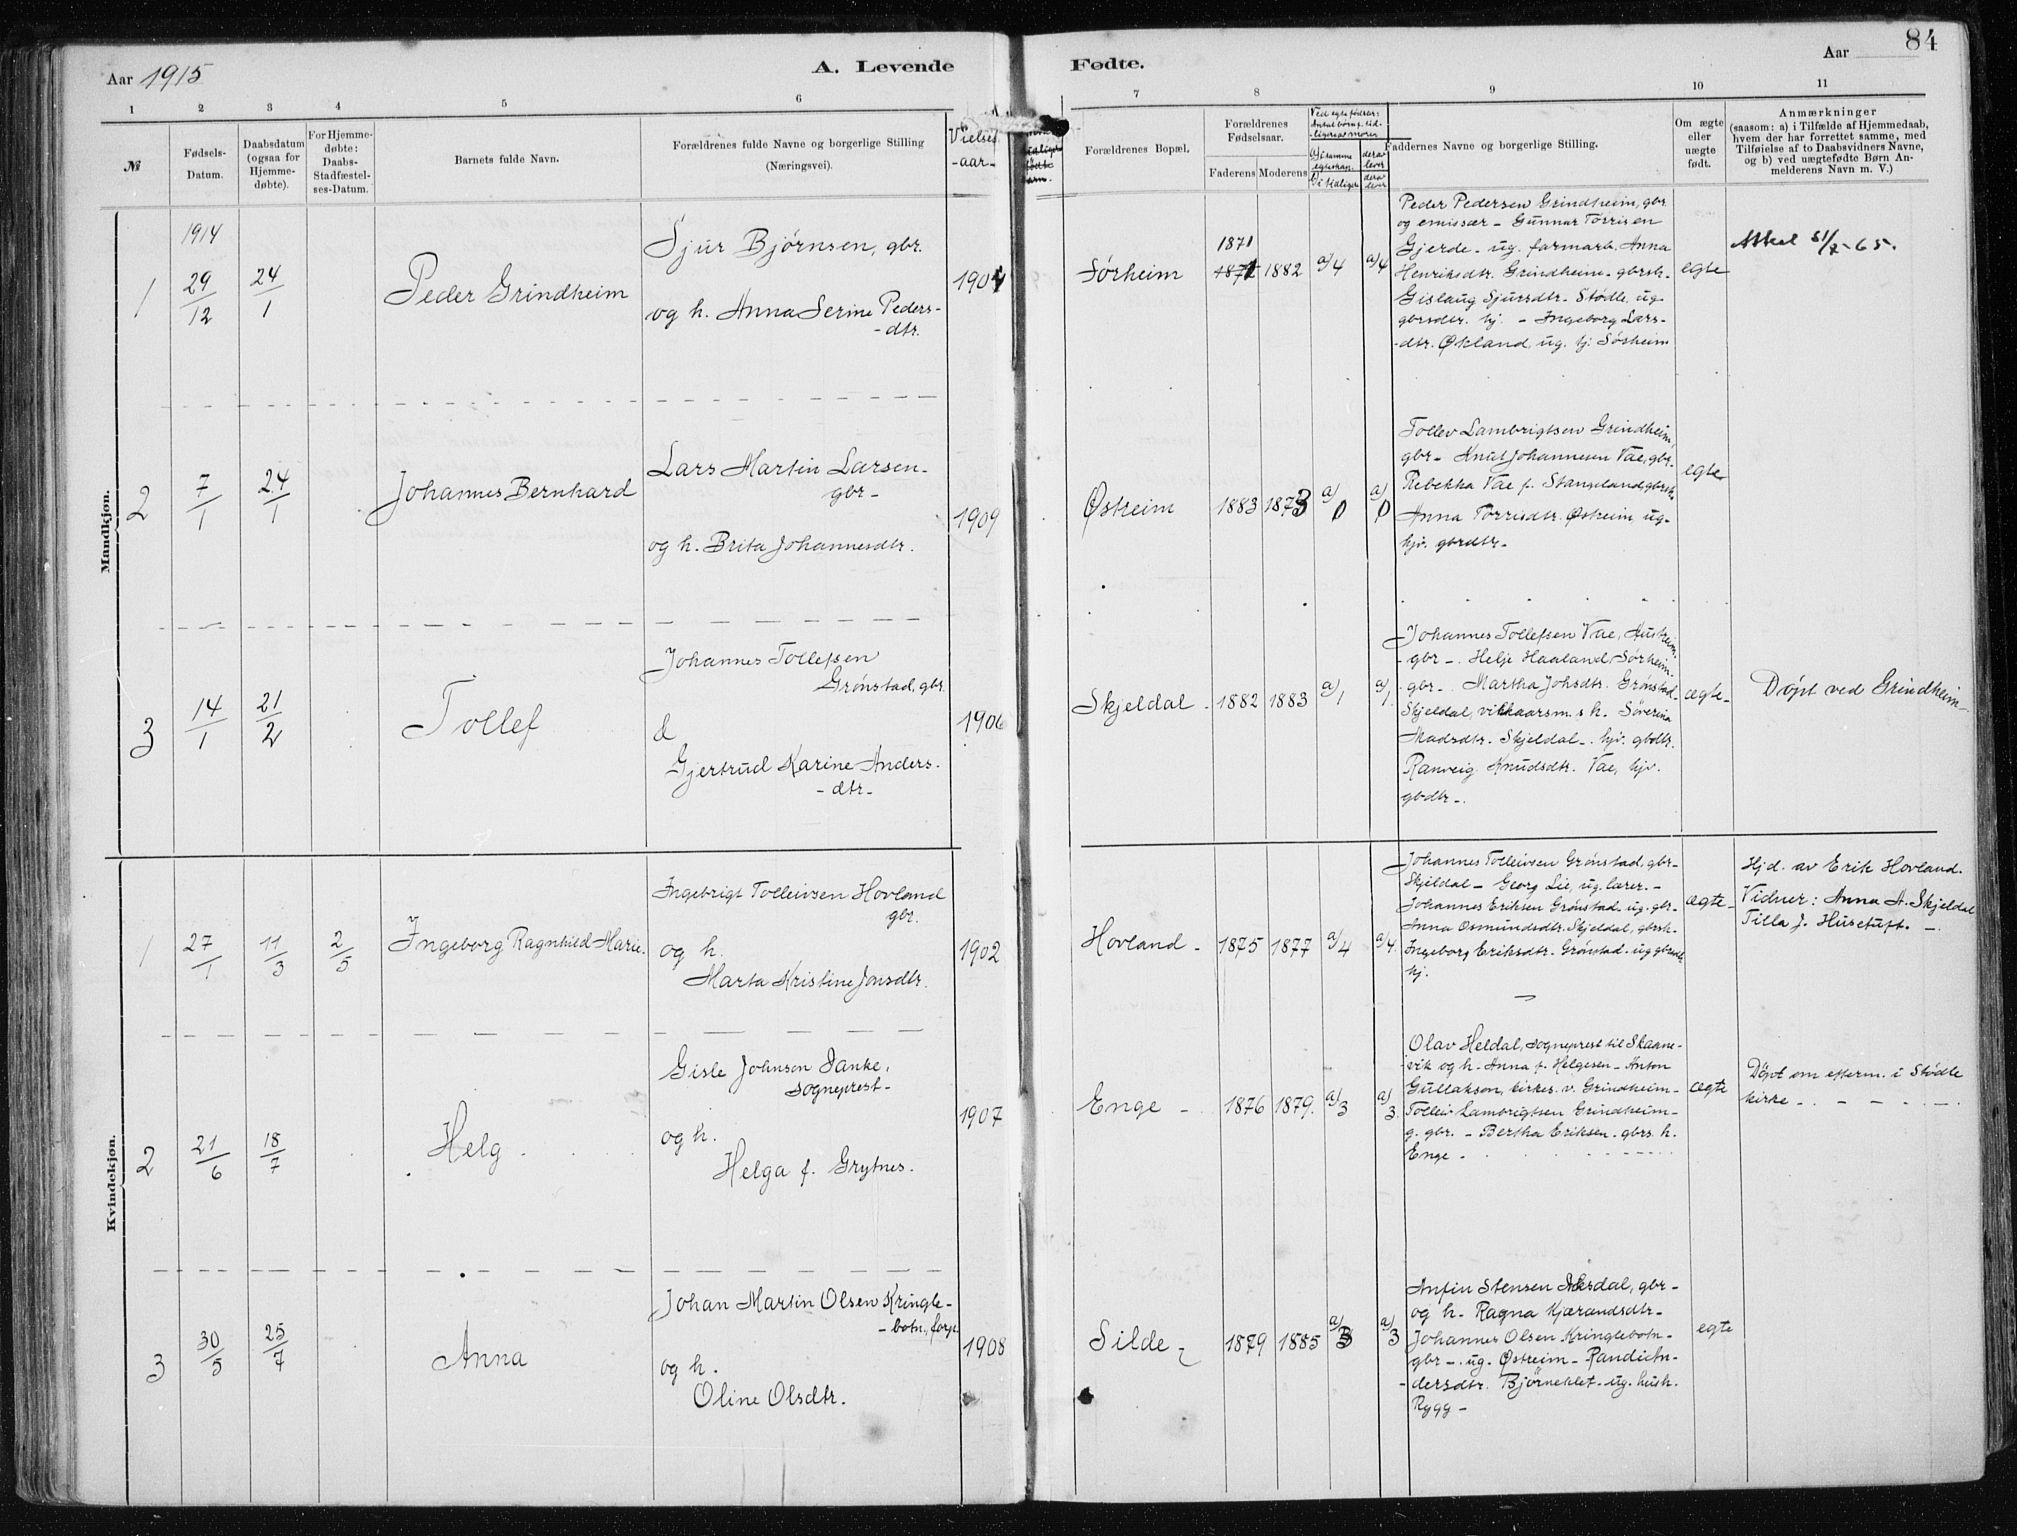 84
Aar 1915
A. Levende
Fødte.
Aar
1
2
3
4
5
6
7
8
9
10
11
№
Fødsels-
Datum.
Daabsdatum
(ogsaa for
Hjemme-
døbte).
For Hjemme-
døbte:
Daabs-
Stadfæstel-
ses-Datum.
Barnets fulde Navn.
Forældrenes fulde Navne og borgerlige Stilling
(Næringsvei).
Vielses-
-aar-
Forældrenes Bopæl.
Forældrenes
Fødselsaar.
Faderens
Moderens
Faddernes Navne og borgerlige Stilling.
Om ægte
eller
uægte
født.
Anmærkninger
(saasom: a) i Tilfælde af Hjemmedaab,
hvem der har forrettet samme, med
Tilføielse af to Daabsvidners Navne,
og b) ved uægtefødte Børn An-
melderens Navn m. V.)
Mandkjøn.
1
1914
29/12
24/1
Peder Grindheim
Sjur Bjørnsen, gbr.
og h. Anna Serine Peders-
-dtr.
1904
Sørheim
1871
1882
a/4
a/4
Peder Pedersen Grindheim, gbr
og emissær - Gunnar Torrisen
Gjerde - ug. farmarb. Anna
Henriksdtr. Grindheim - gbrsh-
Gislaug Sjursdtr. Stødle, ug.
gbrsdtr. hj. - Ingeborg Lars-
-dtr. Økland, ug. hj. Sørheim
egte
2
7/1
24/1
Johannes Bernhard
Lars Martin Larsen-
gbr-
og h. Brita Johannesdtr.
1909
Østreim
1883
1873
a/0
a/0
Tollev Lambrigtsen Grindheim,
gbr- Knut Johannesen Vae, gbr-
Rebekka Vae f. Stangeland, gbrsh.
Anna Torrisdtr. Østreim, ug-
hjv. gbrdtr-
egte
3
14/1
21/2
Tollef
Johannes Tollefsen
Grønstad, gbr.
&
Gjertrud Karine Anders-
-dtr-
1906
Skjeldal -
1882
1883
a/1
a/1.
Johannes Tollefsen Vae, Austreim.
- gbr -. Helje Haaland, Sørheim
- gbr -. Martha Johsdtr. Grønstad
Skjeldal, vilkaarsm. s h. Søverina
Madsdtr. Skjeldal -. hjv. gbdtr.
Ranveig Knudsdtr. Vae, hjv.
gbdtr -.
ægte-
Døpt ved Grindheim-
Kvindekjøn.
1
27/1
11/3
2/5
Ingeborg Ragnhild Marie.
Ingebrigt Tolleivsen Hovland
gbr.
og h.
Marta Kristine Jonsdtr.
1902
Hovland -
1875
1877
a/4
a/4.
Johannes Tolleivsen Grønstad, gbr-
Skjeldal - Georg Lie, ug. lærer. -
Johannes Eriksen Grønstad - ug. gbr-
Anna Osmundsdtr. Skjeldal, gbrsh-
Ingeborg Eriksdtr. Grønstad - ug gbrsdtr
hj.
ægte-
Hjd. av Erik Hovland.
Vidner: Anna A. Skjeldal
Tilla J. Husetuft. -
2
21/6
18/7
Helg
Gisle Johnson Danke,
sogneprest-
og h.
Helga f. Grytnes.
1907
Enge -
1876
1879.
a/3
a/3.
Olav Heldal, sogneprest til Skaane-
vik og h. Anna f. Helgesen - Anton
Gullakson, kirkes. v. Grindheim-
Tollev Lambrigtsen Grindheim-
g. gbr. - Bertha Eriksen. gbrs. h.
Enge -
ægte
Døpt om efterm. i Stødle
kirke -
3
30/5
25/7
Anna
Johan Martin Olsen Kringle-
-botn, forp.
og h.
Oline Olsdtr.
1908
Silde -
1879
1885
a/3
a/3
Anfin Stensen Aksdal, gbr-
og h. Ragna Kjærandsdtr-
Johannes Olsen Kringlebotn-
gbr -. ug. Østreim -
-dersdtr. Bjørneklet - ug. hush.
Rygg -
egte